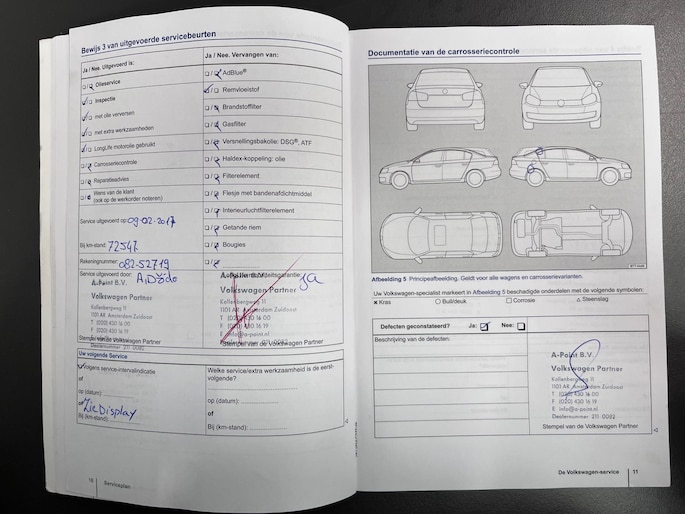 Bewijs 3 van uitgevoerde servicebeurten
Ja / Nee. Uitgevoerd is:
Olieservice
Inspectie
met olie verversen
met extra werkzaamheden
LongLife motorolie gebruikt
Carrosseriecontrole
Reparatieadvies
Wens van de klant
(ook op de werkorder noteren)
Service uitgevoerd op: 09-02-2017
Bij km-stand: 72547
Rekeningnummer: 082-52719
Service uitgevoerd door:
A-Point B.V.
Volkswagen Partner
Kollenbergweg 11
1101 AR Amsterdam Zuidoost
T (020) 430 16 00
F (020) 430 16 19
Stempel van de Volkswagen Partner
Dealernummer 211 0082
Ja / Nee. Vervangen van:
AdBlue®
Remvloeistof
Brandstoffilter
Gasfilter
Versnellingsbakolie: DSG®, ATF
Haldex-koppeling: olie
Filterelement
Flesje met bandenafdichtmiddel
Interieurluchtfilterelement
Getande riem
Bougies
ja
Volkswagen Partner
Kollenbergweg 11
1101 AR Amsterdam Zuidoost
T (020) 430 16 00
F (020) 430 16 19
Stempel van de Volkswagen Partner
Uw volgende Service
Volgens service-intervalindicatie
of
op (datum):
of
Zie Display
Bij (km-stand):
Welke service/extra werkzaamheid is de eerst-
volgende?
op (datum):
of
Bij (km-stand):
10
Serviceplan
Documentatie van de carrosseriecontrole
Afbeelding 5 Principeafbeelding. Geldt voor alle wagens en carrosserievarianten.
Uw Volkswagen-specialist markeert in Afbeelding 5 beschadigde onderdelen met de volgende symbolen:
× Kras
○ Buil/deuk
□ Corrosie
△ Steenslag
Defecten geconstateerd? Ja: Nee:
Beschrijving van de defecten:
A-Point B.V.
Volkswagen Partner
Kollenbergweg 11
1101 AR Amsterdam Zuidoost
T (020) 430 16 00
F (020) 430 16 19
E info@a-point.nl
Dealernummer 211 0082
Stempel van de Volkswagen Partner
De Volkswagen-service
11